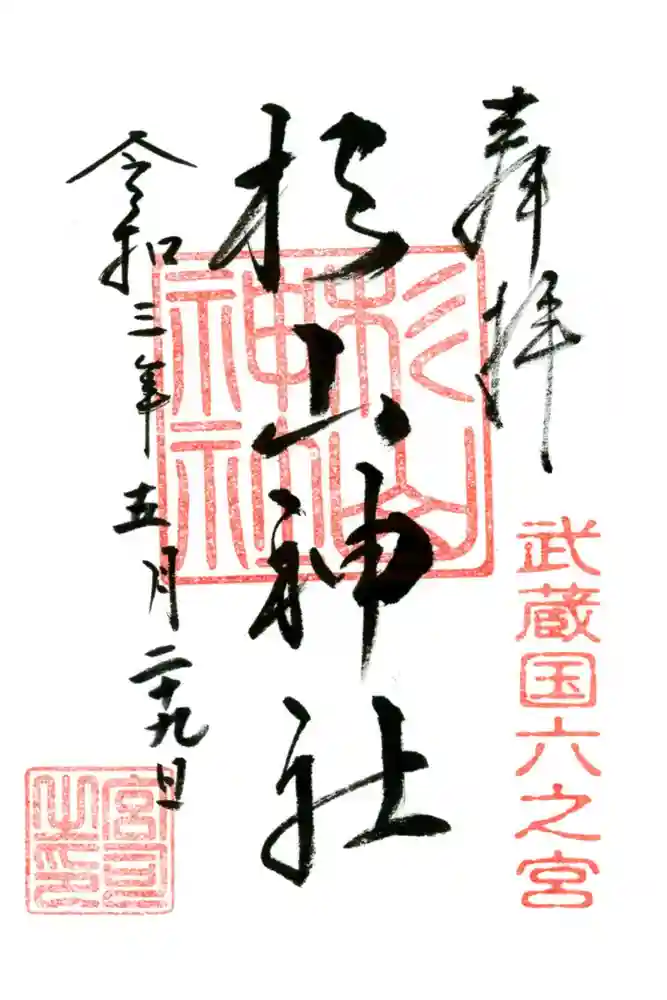 奉拝
武蔵国六之宮
杉山神社
杉山
神社
令和三年五月二十九日
宮司
之印